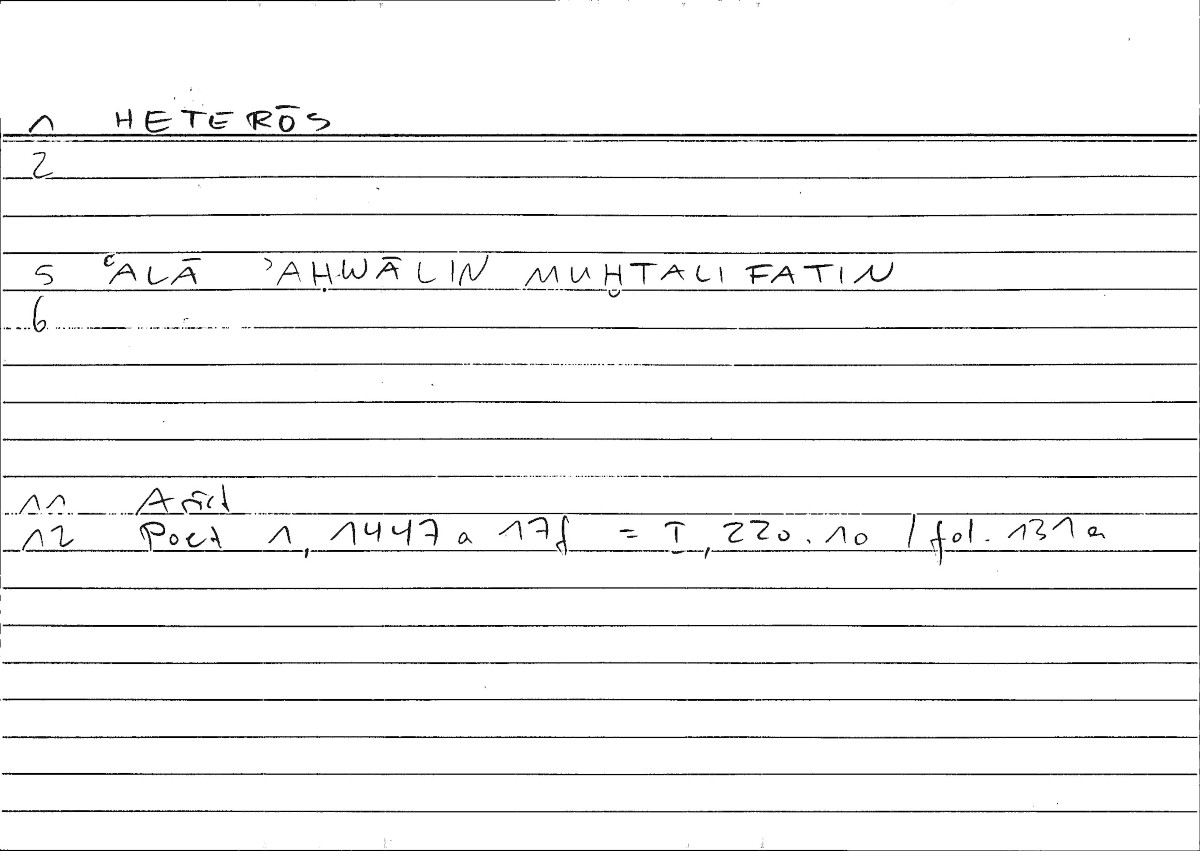 1 HETERŌS
2
5 ʿALĀ ʾAḤWĀLIN MUḪTALIFATIN
6
11 Arist
12 Poet 1, 1447 a 17f = I, 220.10 / fol. 131a